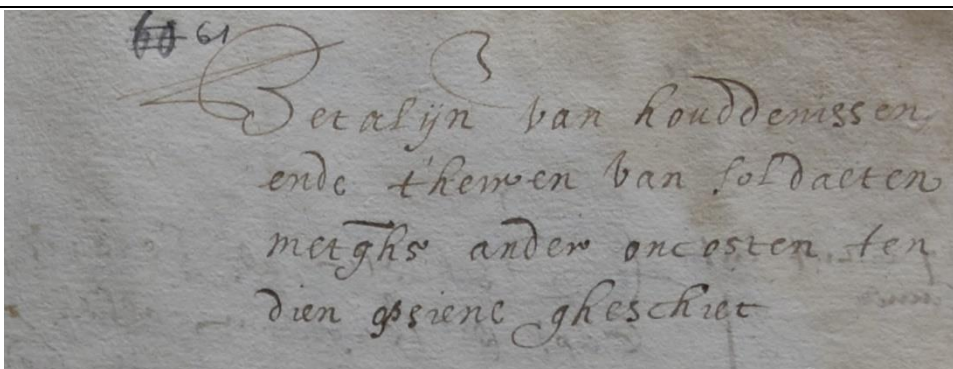 60 61
Betalijn van houddenissen
ende theiren van soldaeten
metghs ander oncosten ten
dien gheschiet